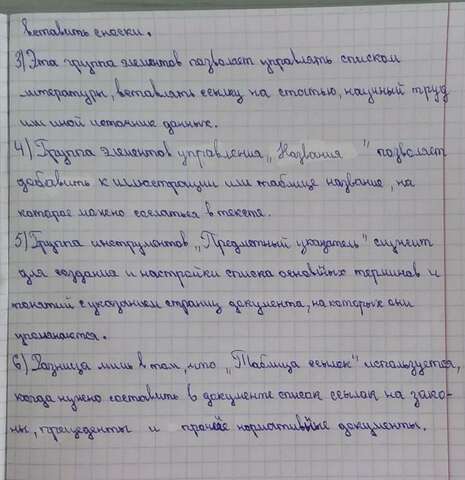 вставить сноски.
3) Эта группа элементов позволяет управлять списком
литературы, вставлять ссылку на статью, научный труд
или иной источник данных.
4) Группа элементов управления „Названия" позволяет
добавить к иллюстрации или таблице название, на
которое можно сослаться в тексте.
5) Группа инструментов „Предметный указатель" служит
для создания и настройки списка основных терминов и
понятий с указанием страниц документа, на которых они
упоминаются.
6) Разница лишь в том, что „Таблица ссылок" используется,
когда нужно составить в документе список ссылок на зако-
ны, прецеденты и прочие нормативные документы.